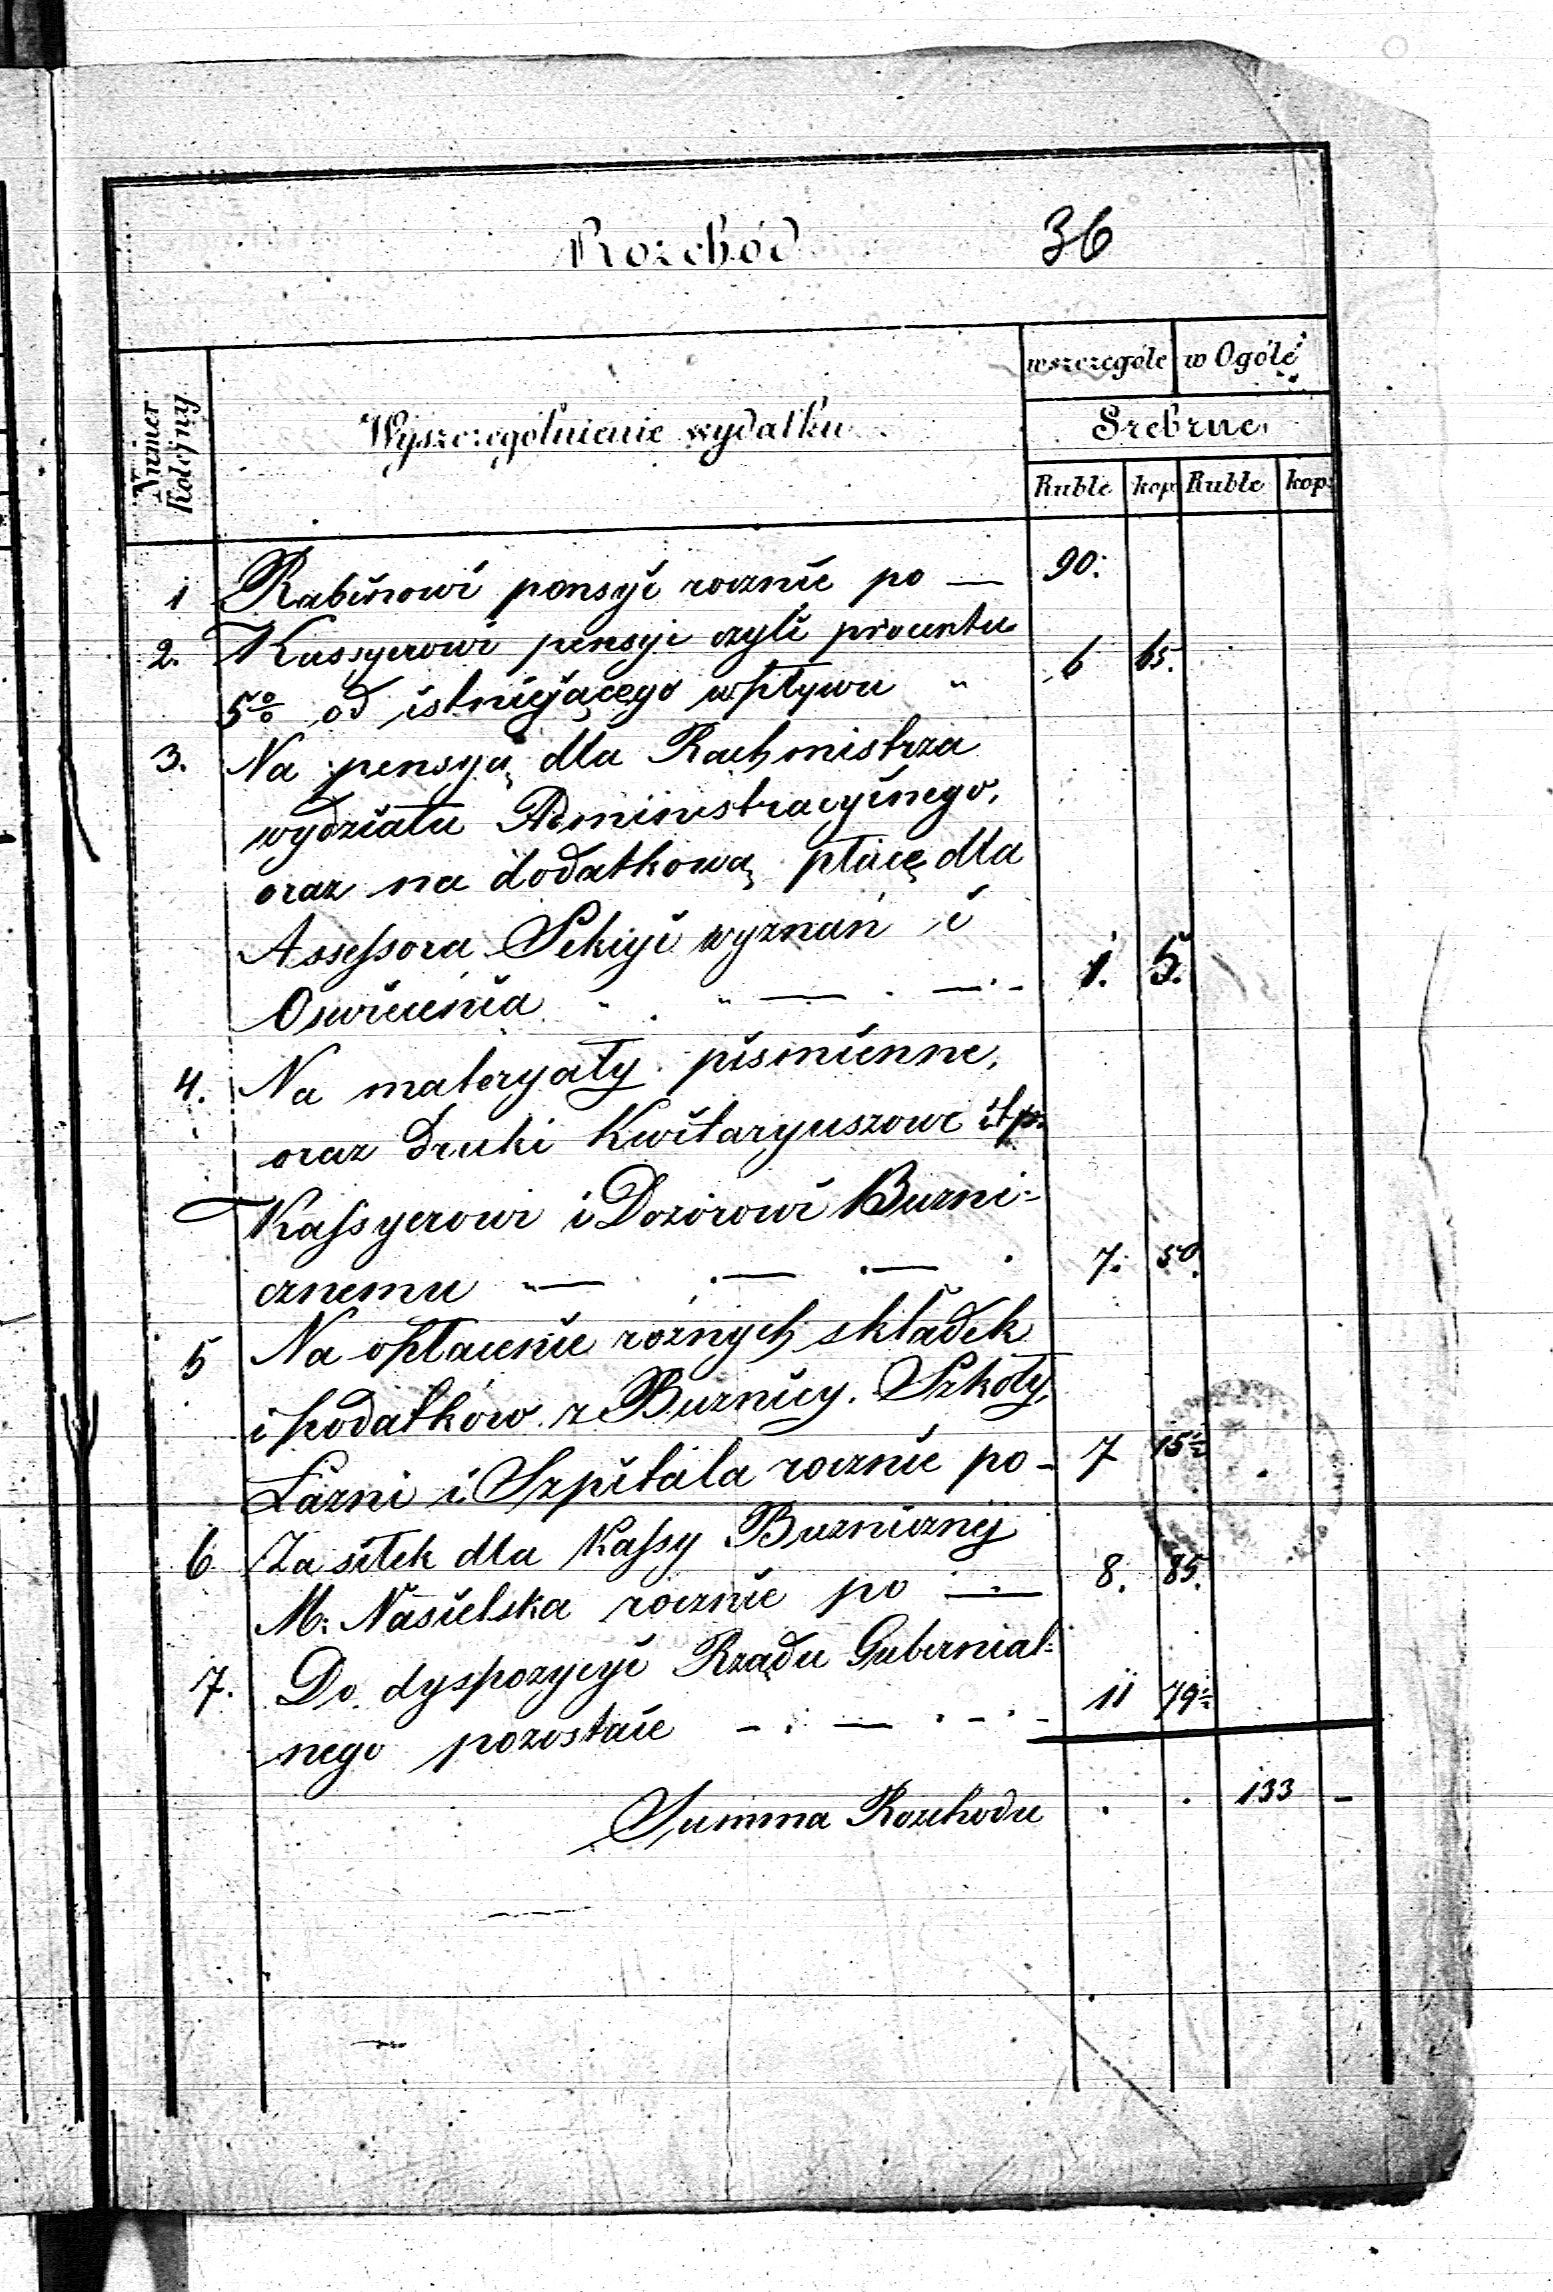 Rozchód 36
Numer Kolejny
Wyszczególnienie wydatku
wszczególe w Ogóle
Srebrne
Ruble kop Ruble kop:
1 Rabinowi pensyi rocznie po — 90.
2. Kassyerowi pensyi czyli procentu
5% od istniejącego wpływu " 6 65.
3. Na pensyą dla Rachmistrza
wydziału Administracyjnego,
oraz na dodatkową płacę dla
Assessora Sekcyi wyznań i
Oswiecenia " " — . — . - 1. 5.
4. Na materyały piśmienne,
oraz druki Kwitaryuszowe itp.
Kassyerowi i Dozorowi Buzni-
cznemu — . — . — . 7. 50.
5 Na opłacenie różnych składek
i podatków z Buznicy. Szkoły,
Łazni i Szpitala rocznie po - 7 15½
6 Zasiłek dla Kassy Buzniczny
M: Nasielska rocznie po — 8. 85.
7. Do dyspozycyi Rządu Gubernial-
nego pozostaie - . — . - . - 11 79½
Summa Rozchodu . . 133 -